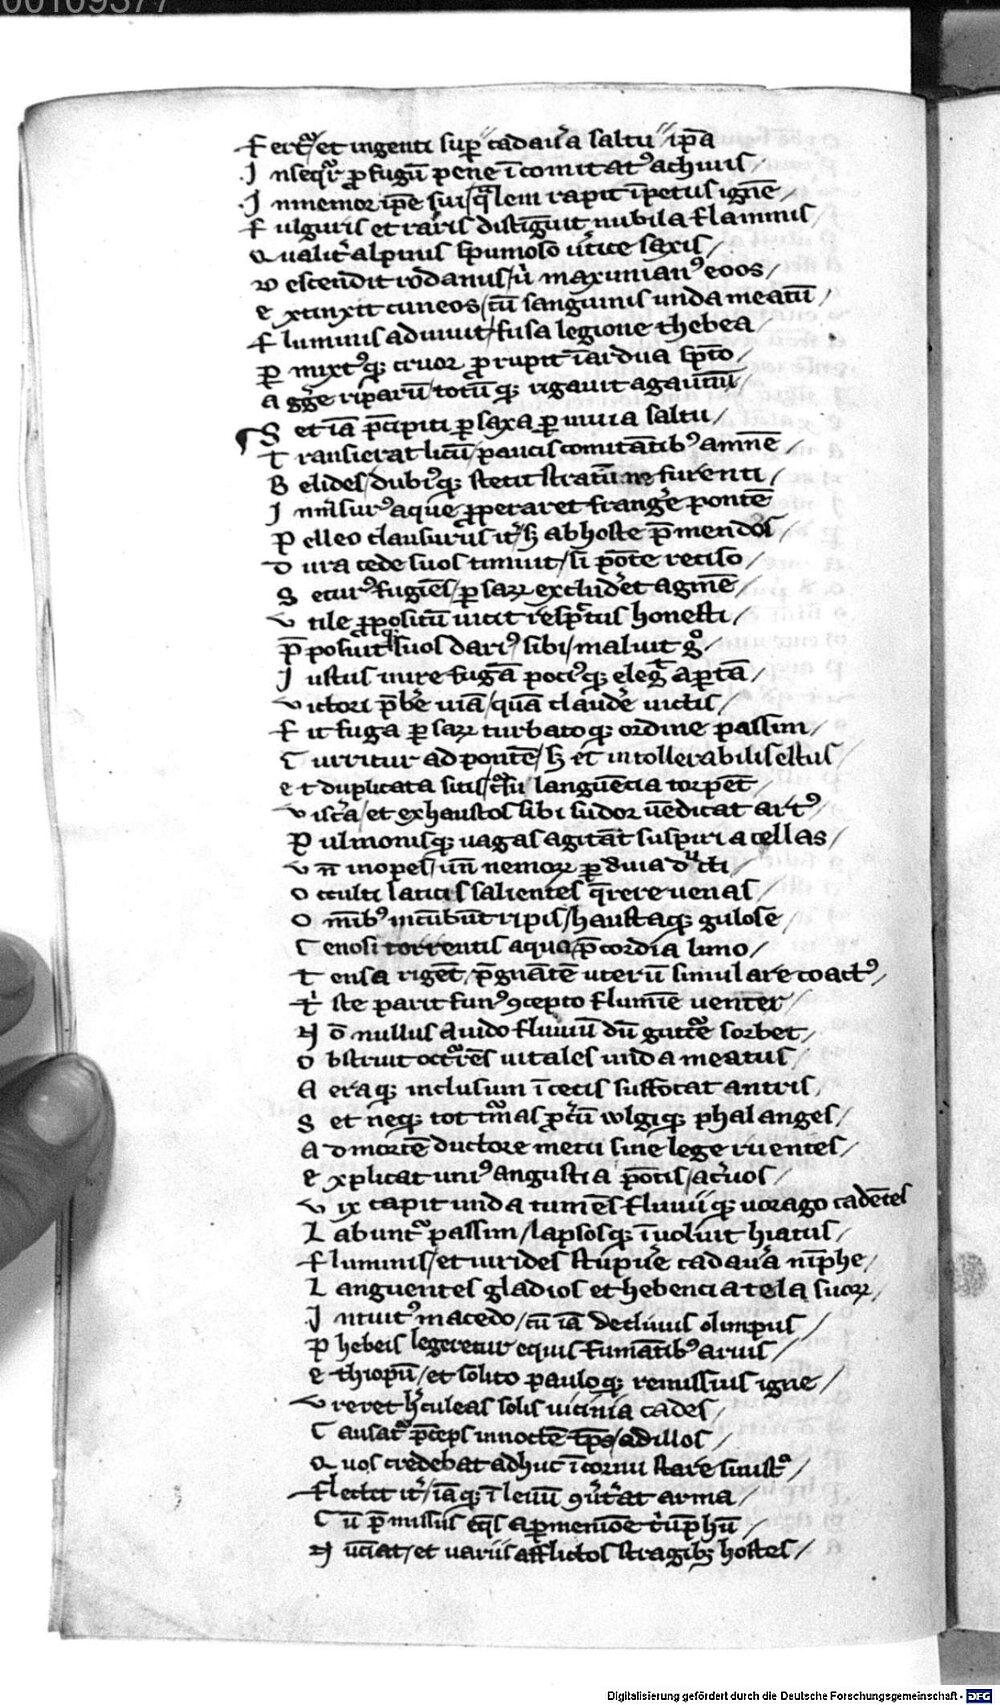 00109377
Fert᷑/ et ingenti sup̄ cadau̾a saltu ip̄a
I nseqr̄ ꝓfugū pene ī comitatꝰ achiuis/
I nmemor ip̄e sui/ q̄lem rapit īpetus ignē/
F ulguris et raris distīguit nubila flammis/
Q ualit̾ alpinus spumoso u̾tice saxis/
D escendit rodanus/ u̾ maximianꝰ eoos/
E xtinxit cuneos/ cū sanguinis unda meatū/
F luminis adiuuit/ fusa legione thebea/
P mixtꝰqꝫ cruor ꝓrupit ī ardua spūto/
A gg̾e riparū/ totūqꝫ rigauit agaunū/
S et iā p̄cipiti ꝑ saxa ꝑ inuia saltu/
T ransierat licū/ paucis comitātibꝰ amnē/
B elides/ dubiꝰqꝫ stetit stratū ne furenti/
I nmīsurꝰ aque ꝓperaret frang̾e pontē
P elleo clausurus it̾/ sꝫ ab hoste p̄mendos/
D ura cede suos timuit/ si pōte reciso/
S eturꝰ fugiēs/ ꝑsaꝝ excluderet agmē/
V tile ꝓpositū uicit respectus honesti/
P̄ posuitqꝫ suos dariꝰ sibi/ maluit gͦ/
I ustus iure fugā pociꝰqꝫ elegit aꝑtā/
V ictori p̄b̾e uiā/ quā claud̾e uictis/
F it fuga ꝑsaꝝ turbatoqꝫ ordine passim/
C urritur ad pontē/ sꝫ et intollerabilis estus/
E t duplicata sitis/ cūsu languēcia torpent/
V isc̾a/ et exhaustos sibi sudor uēdicat artꝰ/
P ulmonisqꝫ uagas agitāt suspiria cellas/
V n̄ inopes/ un̄ nemoꝝ ꝑ diuia ducti/
O cculti laticis salientes q̄rere uenas/
O mībꝰ incūbūt ripis/ haustaqꝫ gulose/
C enosi torrentis aqua/ p̄cordia limo/
T ensa rigēt/ p̄gnātē uterū simulare coactꝰ/
T̾ ste parit funꝰ ꝯcepto flumīe uenter/
N ō nullus auido fluuiū dū guttu̾e sorbet/
O bstruit occurrēs uitales unda meatus/
A eraqꝫ inclusum ī cecis suffocat antris/
S et neqꝫ tot tur̄mas ꝓc̾ū wlgiqꝫ phalanges/
A d mortē ductore metu sine lege ruentes/
E xplicat uniꝰ angustia pōtis/ acu̾os/
V ix capit unda tumēs fluuiiqꝫ uorago cadētes
L abunt᷑ passim/ lapsosqꝫ īuoluit hiatus/
F luminis/ et uirides stupu̾e cadau̾a nīphe/
L anguentes gladios et hebencia tela suoꝝ/
I ntuitꝰ macedo/ cū iā decliuis olimpus/
P hebeis legeretur equis fumātibꝰ aruis/
E thiopū/ et solito pauloqꝫ remissius igne/
V reret h̾culeas solis uicinia cades/
C ausat᷑ p̄ceps in noctē tp̄s/ ad illos/
Q uos credebat adhuc ī cornu stare sinistꝰ/
F lectit it̾/ iāqꝫ ī leuū ꝯu̾t̾at arma/
C ū p̄missus eq̄s a ꝑmenione t̾ūphū/
N ūciat/ et uariis afflictos stragibꝫ hostes/
Digitalisierung gefördert durch die Deutsche Forschungsgemeinschaft - DFG